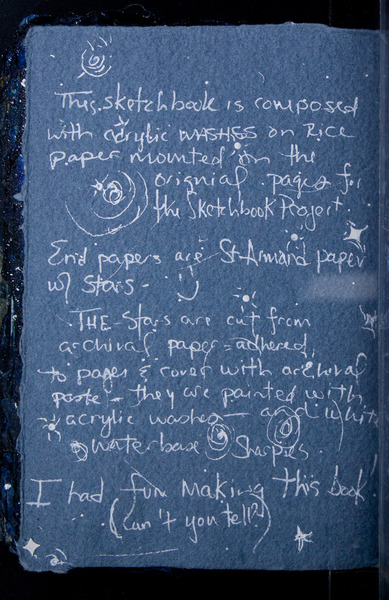 This sketchbook is composed
with acrylic WASHES on Rice
paper mounted on the
orignial pages for
the Sketchbook Project.
End papers are St. Armand paper
w/ stars -
THE stars are cut from
archival paper - adhered
to pages & cover with archival
paste - they are painted with
acrylic washes - and white
waterbase Sharpies.
I had fun making this book!
(Can't you tell?)